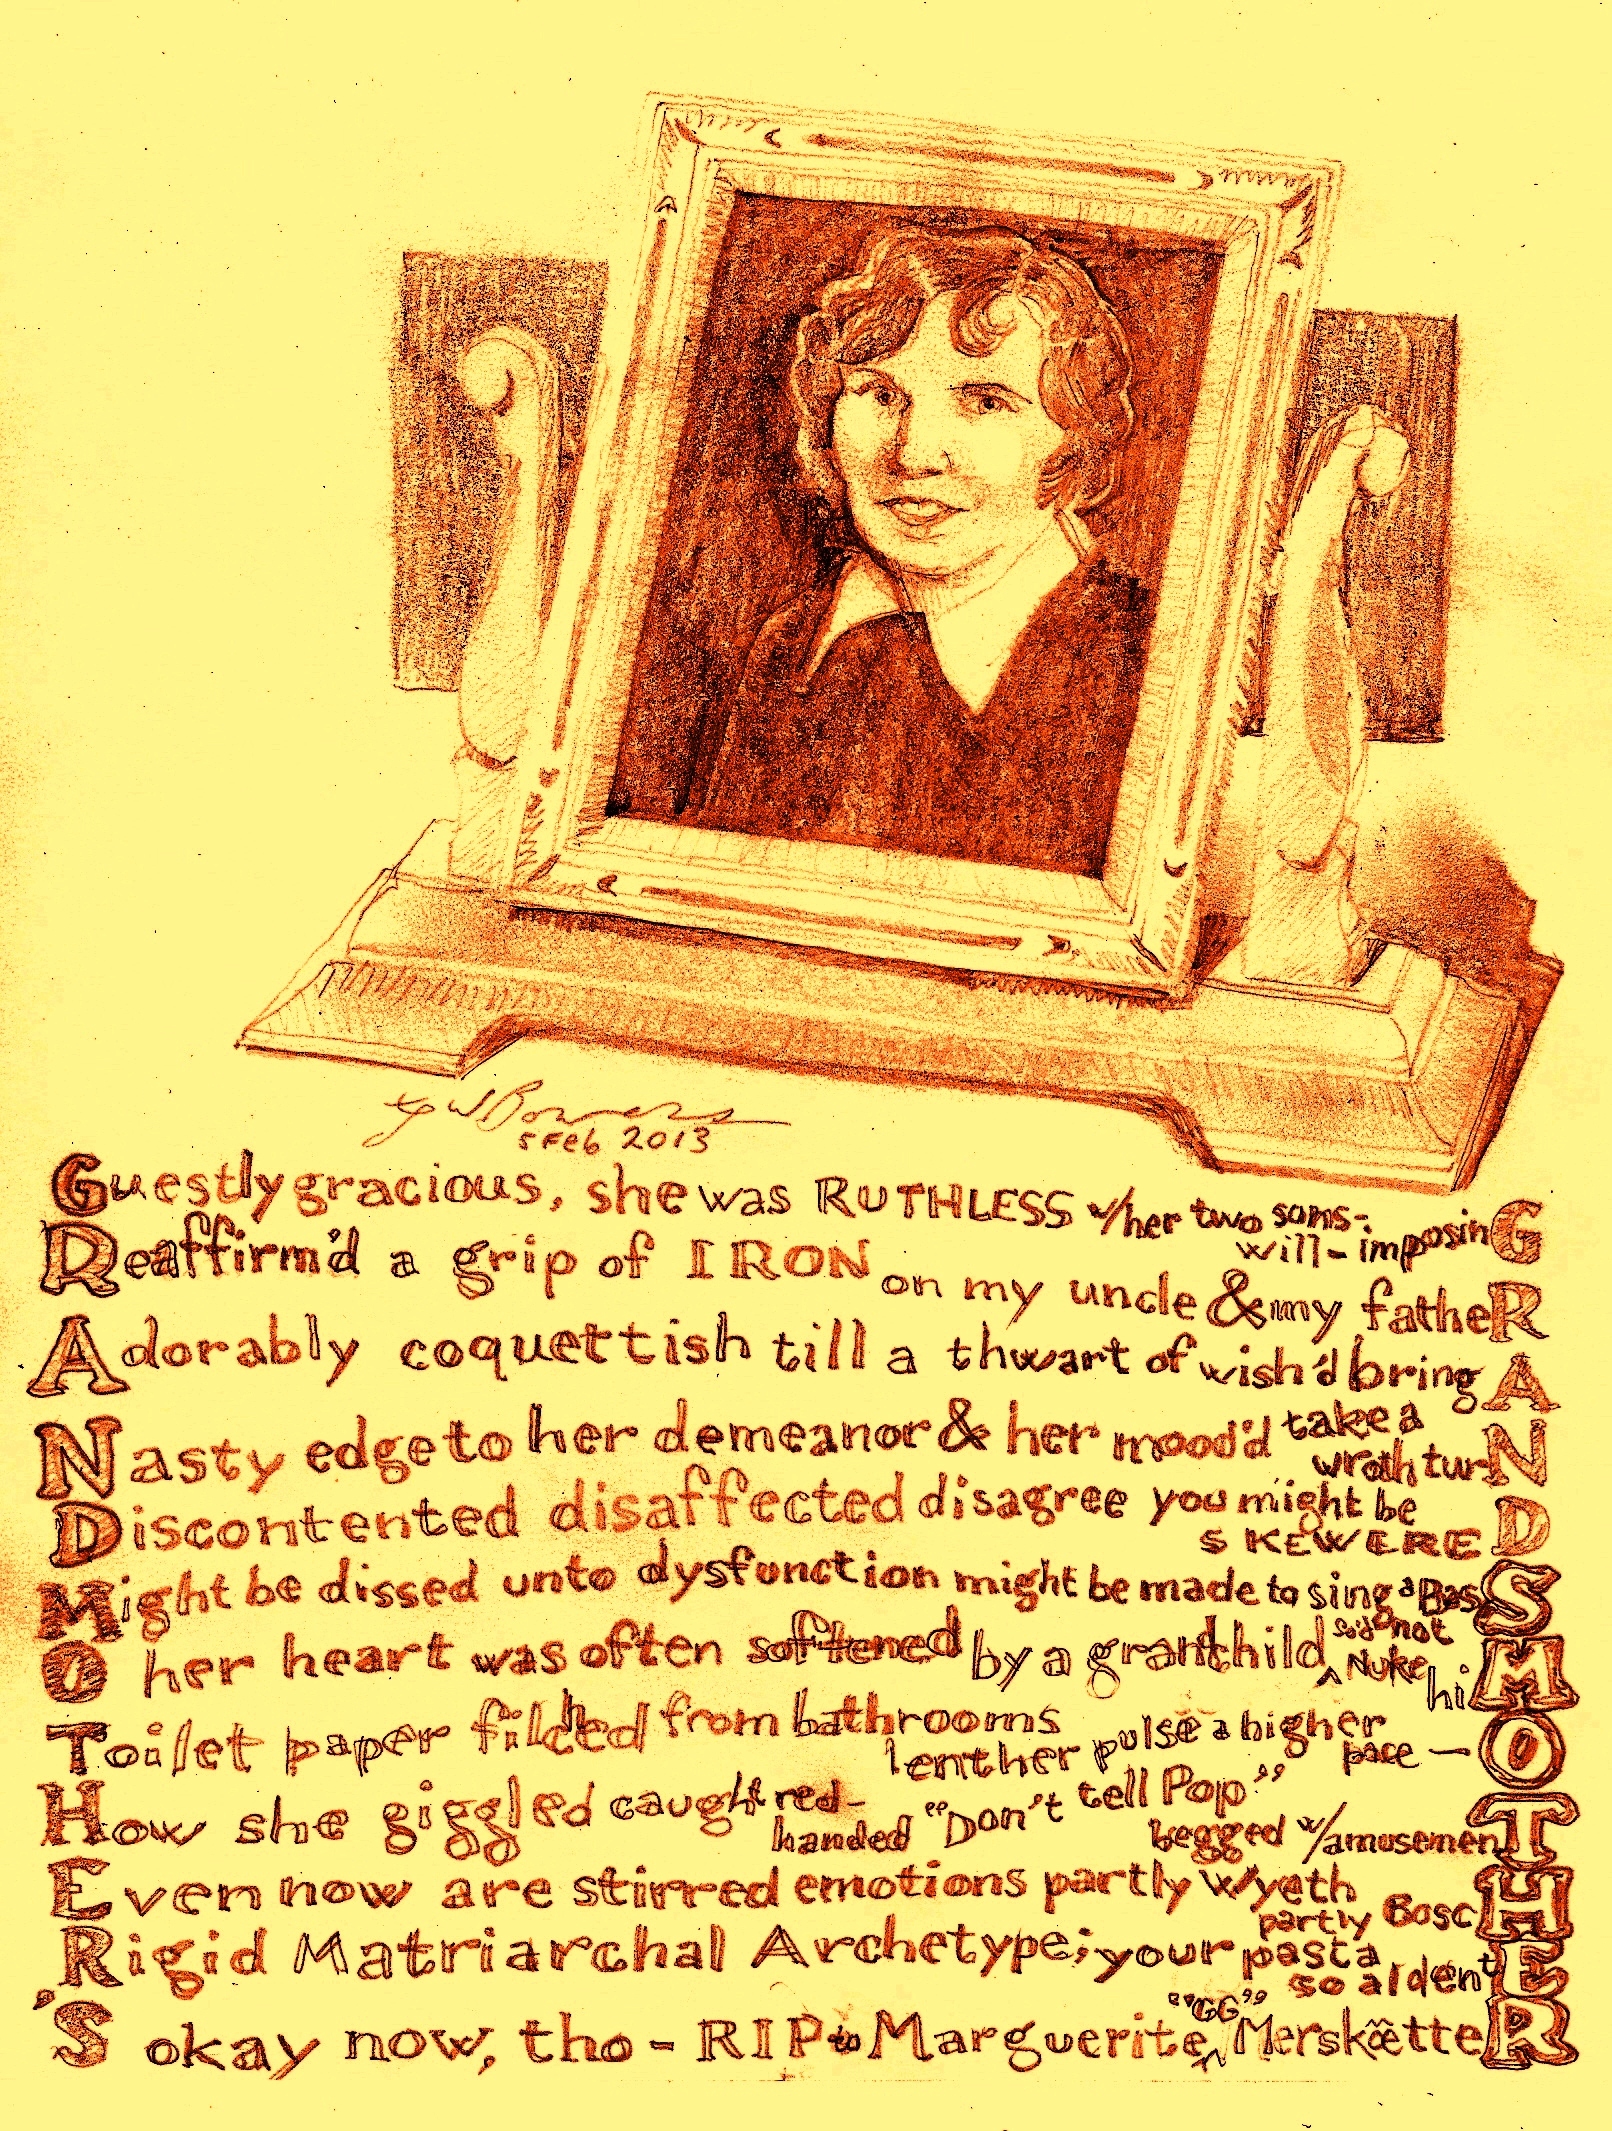 5 Feb 2013
Guestly gracious, she was RUTHLESS w/her two sons-: will-imposinG
Reaffirm'd a grip of IRON on my uncle & my fatheR
Adorably coquettish till a thwart of wish'd bring A
Nasty edge to her demeanor & her mood'd take a wroth turN
Discontented disaffected disagree you might be SKEWERED
Might be dissed unto dysfunction might be made to sing a BasS
O her heart was often softened by a grandchild so'd not Nuke hiM
Toilet paper filched from bathrooms lent her pulse a higher pace — O
How she giggled caught red-handed "Don't tell Pop" begged w/amusemenT
Even now are stirred emotions partly Wyeth partly BoscH
Rigid Matriarchal Archetype; your pasta so al dentE
'S okay now, tho - RIP to Marguerite "GG" MerskœtteR